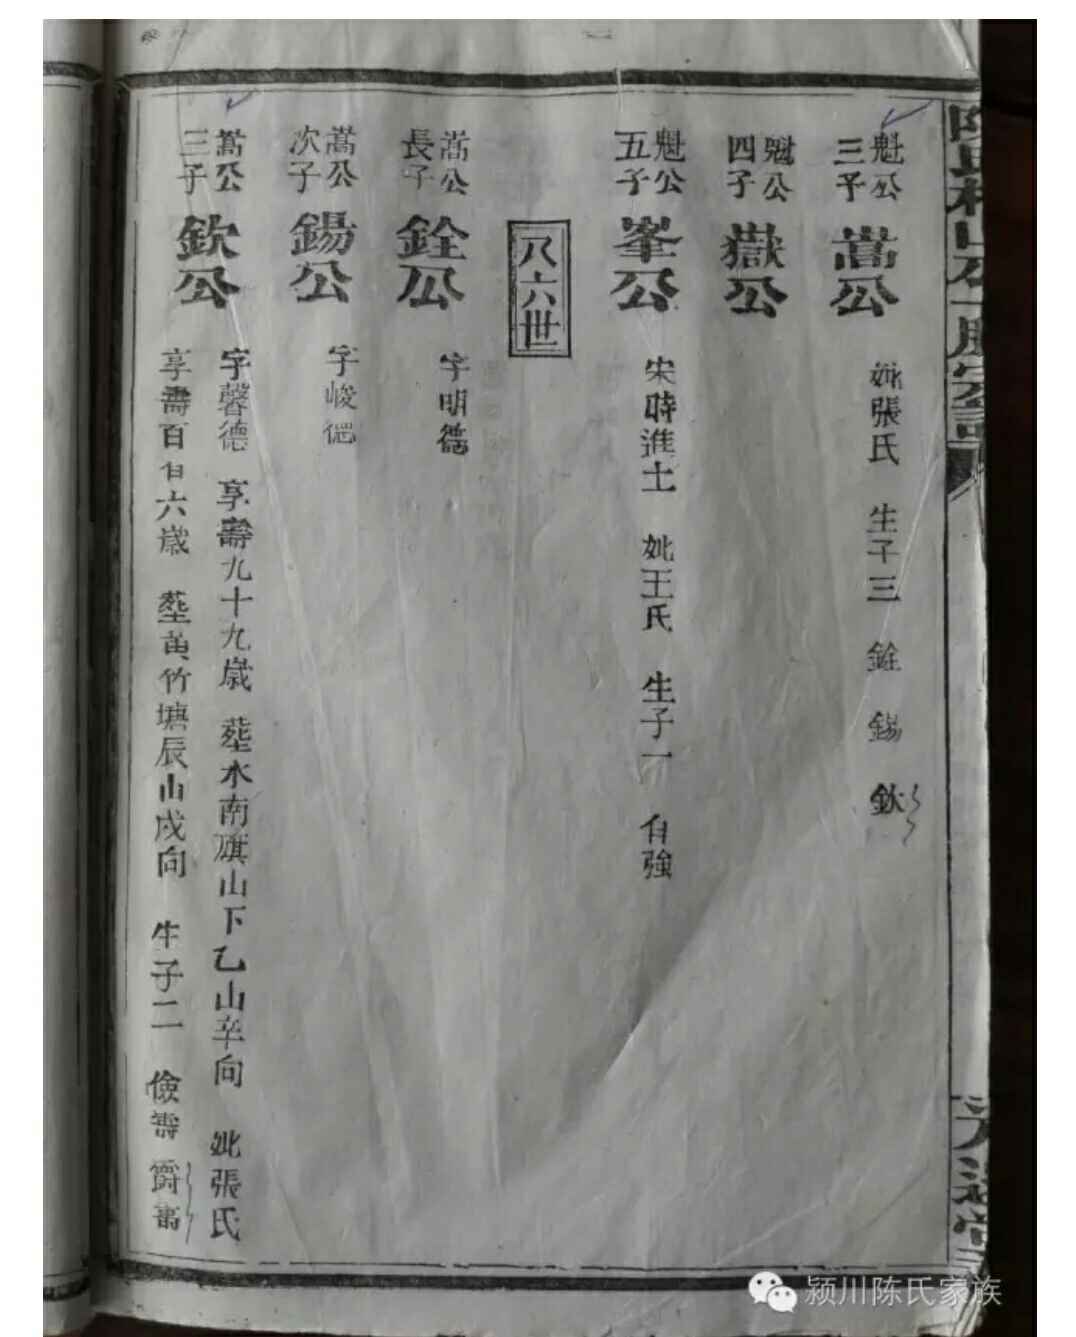 魁公
三子
嵩公
妣張氏 生子三 銓 錫 欽
魁公
四子
嶽公
魁公
五子
峯公
宋時進士 妣王氏 生子一 自強
八六世
嵩公
長子
銓公
字明德
嵩公
次子
錫公
字峻德
嵩公
三子
欽公
字馨德 享壽九十九歲 塟水南旗山下乙山辛向 妣張氏
享壽百有六歲 塟黃竹塘辰山戌向 生子二 儉壽 爵壽
颍川陈氏家族